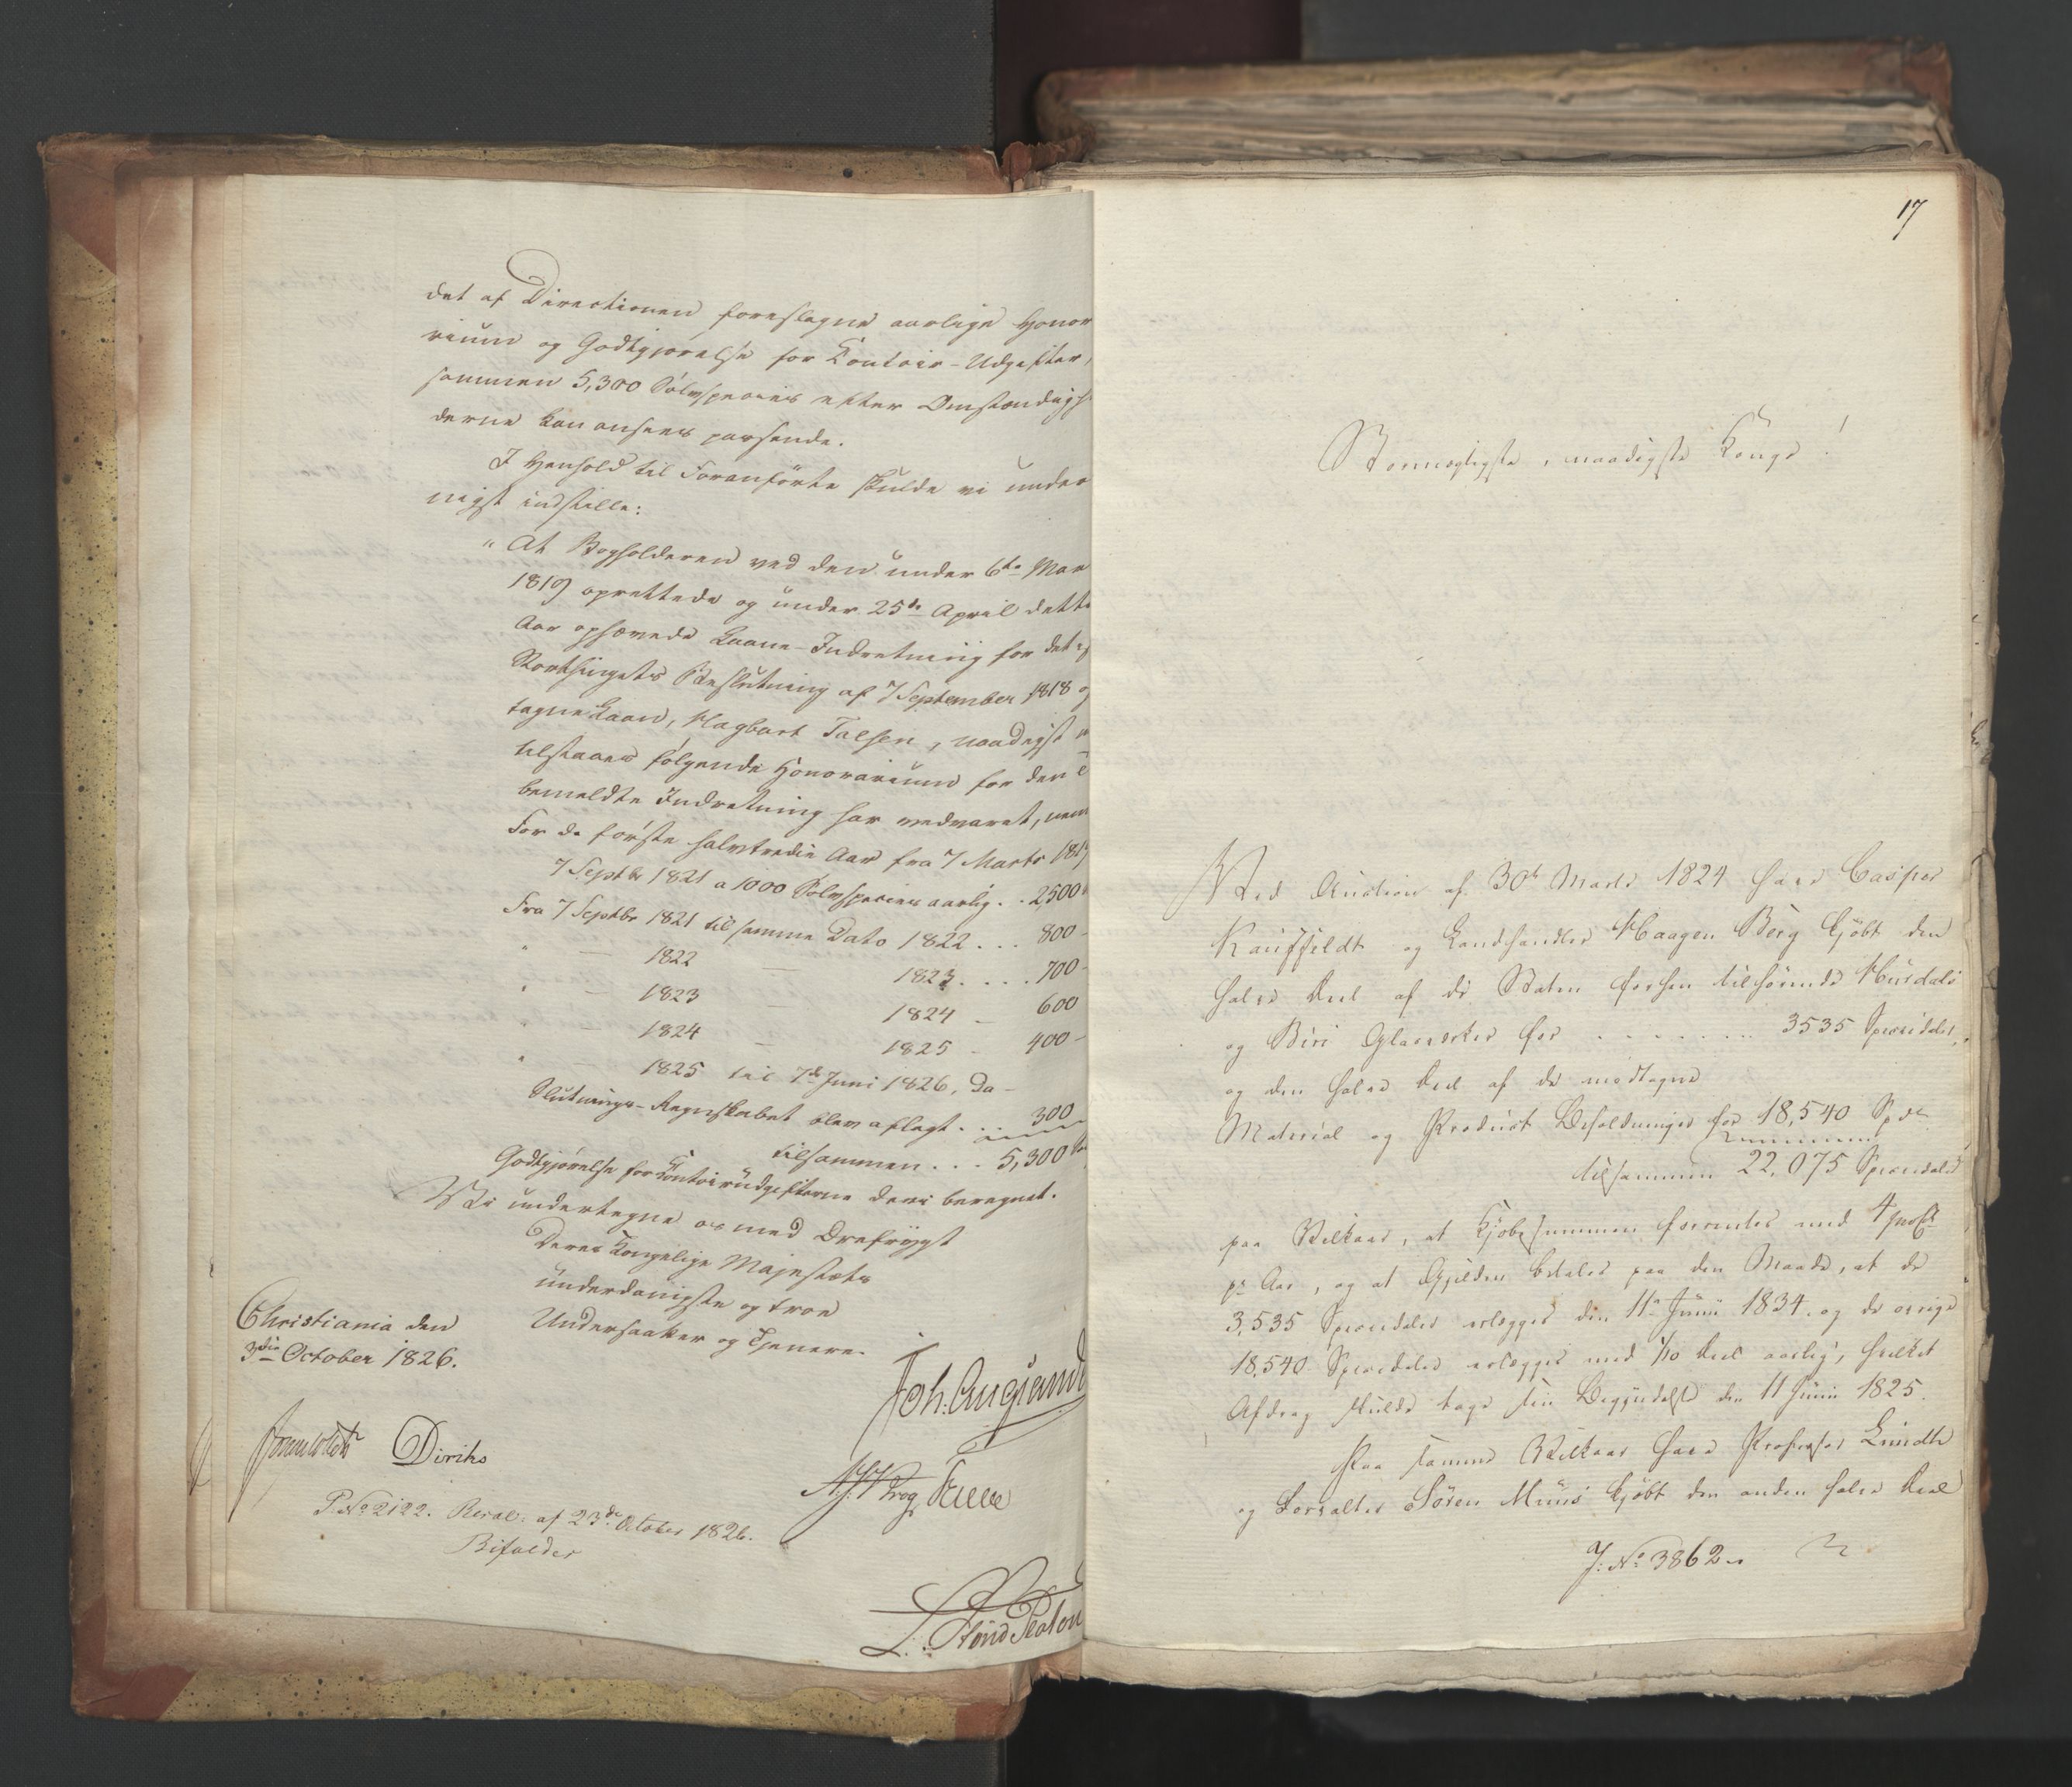 det af Directionen foreslagne aarlige Honor
rium og Godtgjørelse for Contoir-Udgifter,
sammen 5,300 Sølvspecies efter Omstændigh
derne kan ansees passende.
I Henhold til Foranførte skulde vi under
nigst indstille:
" At Bogholderen ved den under 6te Mar
1819 oprettede og under 25de April dette
Aar ophævede Laane-Indretning for det ef
Storthingets Beslutning af 7 September 1818 op
tagne Laan, Hagbart Falsen, naadigst
tilstaaes følgende Honorarium for den
bemeldte Indretning har vedvaret, nem
For de første halvtredie Aar fra 7 Marts 1819
7 Septbr 1821 a 1000 Sølvspecies aarlig . . 2500
Fra 7 Septbr 1821 til samme Dato 1822 . . . 800 -
" — 1822 — 1823 . . . . 700 -
" — 1823 — 1824 — 600
" — 1824 — 1825 - 400 -
" — 1825 til 7de Juni 1826, da -
Slutnings-Regnskabet blev aflagt . . . 300
tilsammen . . . 5,300
Godtgjørelse for Contoirudgifterne deri beregnet.
Vi undertegne os med Ærefrygt
Deres Kongelige Majestæts
underdanigste og troe
Undersaatter og Tjenere.
Christiania den
3die October 1826.
Joh. Collett
Diriks
P. No 2122. Resol: af 23de October 1826.
Bifaldes
17
Stormægtigste, naadigste Konge!
Ved Auction af 30te Marts 1824 have Casper
Kauffeldt og Landhandler Haagen Berg kjøbt den
halve Deel af de Staten forhen tilhørende Hurdals
og Biri Glasværker for . . . . . . . . 3535 Speciedaler,
og den halve Deel af de modtagne
Material og Product Beholdninger for 18,540 Spdlr
tilsammen 22,075 Speciedaler
paa Vilkaar, at Kjøbesummen forrentes med 4 proCt
pr Aar, og at Gjelden betales paa den Maade, at de
3,535 Speciedaler erlægges den 11te Junii 1834. og de øvrige
18,540 Speciedaler erlægges med 1/10 Deel aarlig, hvilket
Afdrag skulde tage sin Begyndelse den 11 Junii 1825.
Paa samme Vilkaar have Professor
og Forvalter Sören Muus kjøbt den anden halve Deel
J: No 3862.